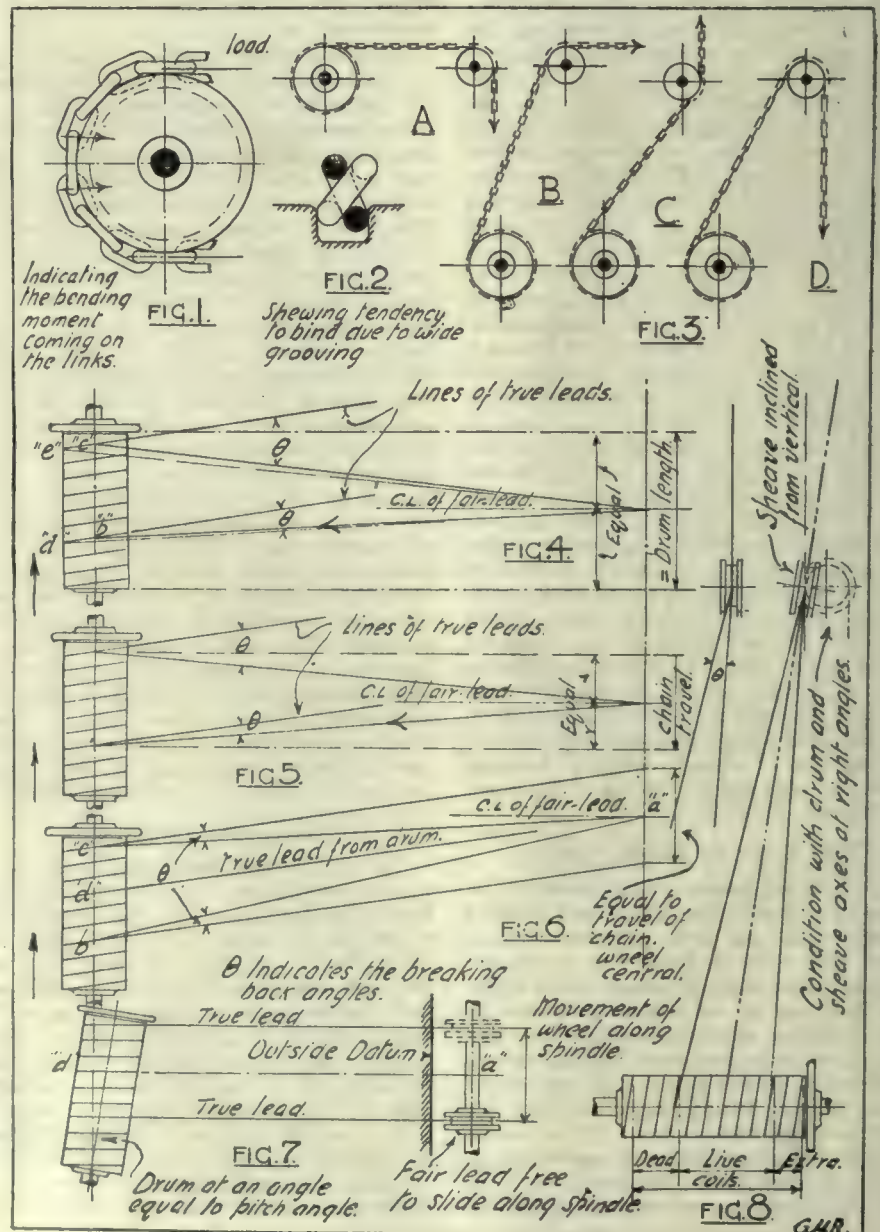 load.
A
B.
C.
D.
Indicating
the bending
moment
coming on
the links.
FIG.1.
FIG.2.
Shewing tendency
to bind due to wide
grooving
FIG.3.
Lines of true leads.
"e"
"c"
θ
C.L. of fair-lead.
"b"
"d"
θ
FIG.4.
Equal
= Drum length.
Sheave inclined
from vertical.
θ
Lines of true leads.
θ
C.L. of fair-lead.
θ
Equal
chain
travel.
FIG.5.
C.L. of fair-lead.
"a"
"c"
True lead from drum.
θ
"d"
b
FIG.6.
Equal to
travel of
chain.
wheel
central.
Condition with drum and
sheave axes at right angles.
θ Indicates the breaking
back angles.
True lead
Outside Datum
"a"
Movement of
wheel along
spindle.
"d"
True lead.
FIG.7.
Drum at an angle
equal to pitch angle.
Fair lead free
to slide along spindle.
Dead
Live
Extra.
coils.
FIG.8.